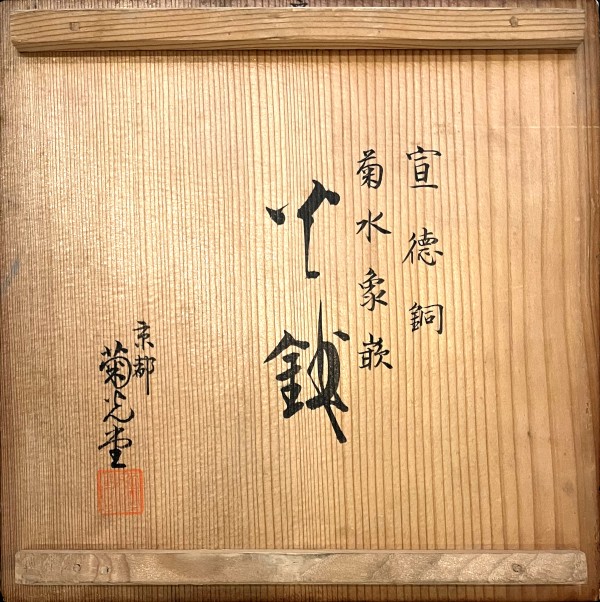 宣徳銅
菊水象嵌
火鉢
京都
菊光堂